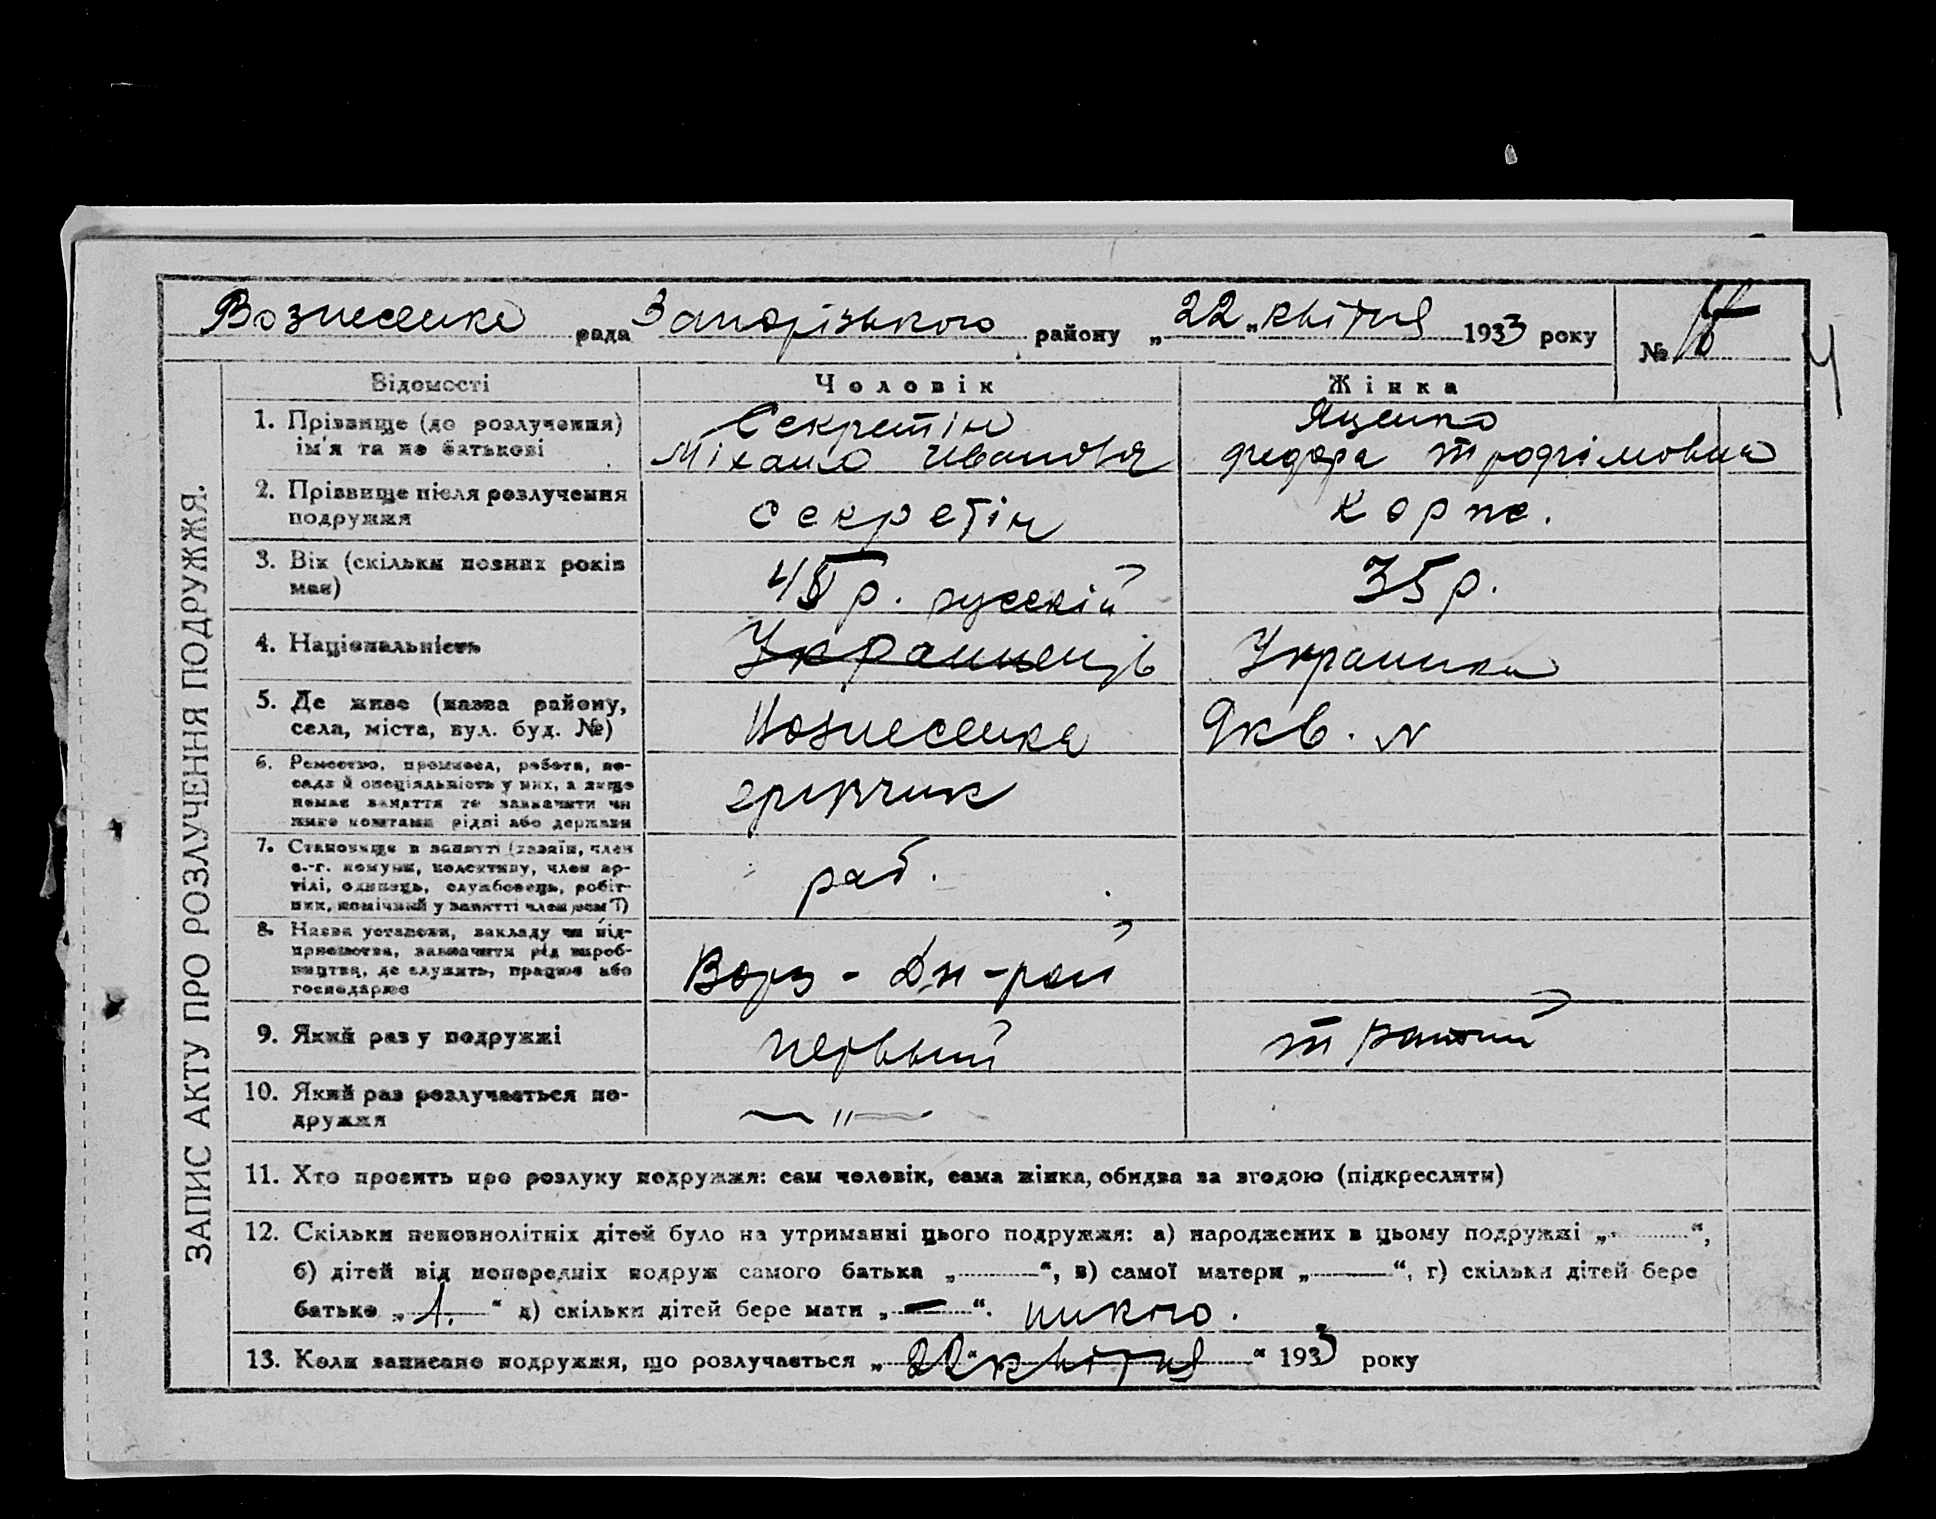 Вознесенка рада Запорізького району „22„ квітня 1933 року
№
4
ЗАПИС АКТУ ПРО РОЗЛУЧЕННЯ ПОДРУЖЖЯ.
Відомості Чоловік Жінка
1. Прізвище (до розлучення) Секретін Яценко
ім'я та по батькові Міхаил Иванович федора трофімовна
2. Прізвище після розлучення
подружжя секретін корпе.
3. Вік (скільки повних років
має) 45 р. русскій 35 р.
4. Національність Украинець Украинка
5. Де живе (назва району,
села, міста, вул. буд. №) Вознесенка 9 кв. N
6. Ремество, промисел, робота, по-
сада й спеціяльність у них, а якщо
немає заняття то зазначити чи
живе коштами рідні або держави
7. Становище в занятті (хазяїн, член
с.-г. комуни, колективу, член ар-
тілі, одинець, службовець, робіт-
ник, помічний у занятті член сем'ї) раб.
8. Назва установи, закладу чи під-
приємства, зазначити рід вироб-
ництва, де служить, працює або
господарює
9. Який раз у подружжі первый
10. Який раз розлучається по-
дружжя — " —
11. Хто просить про розлуку подружжя: сам чоловік, сама жінка, обидва за згодою (підкреслити)
12. Скільки неповнолітніх дітей було на утриманні цього подружжя: а) народжених в цьому подружжі „ “,
б) дітей від попередніх подруж самого батька „ “, в) самої матери „ “, г) скільки дітей бере
батько „ 1. “ д) скільки дітей бере мати „ — “. никого.
13. Коли записано подружжя, що розлучається „ 22 “ квітня “ 1933 року